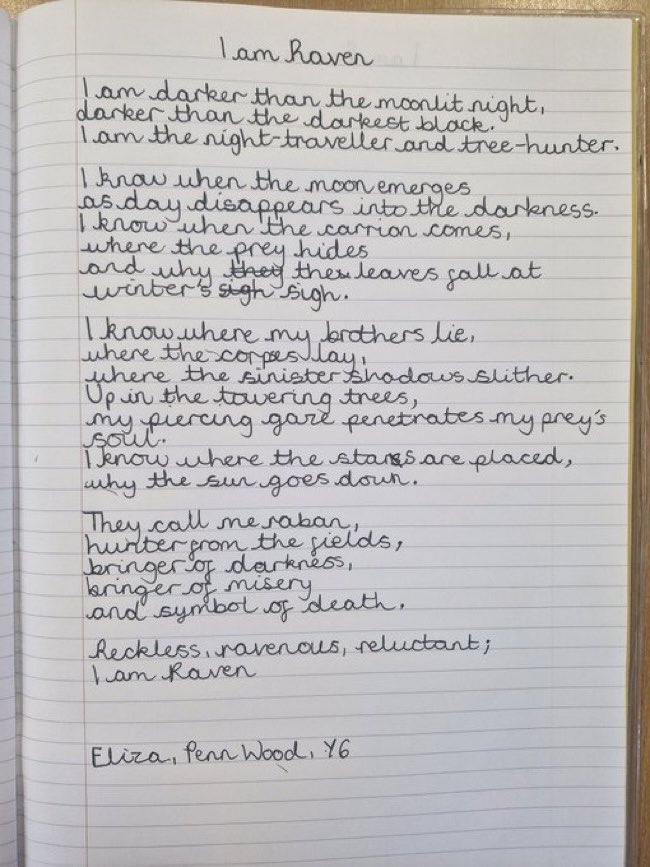 I am Raven
I am darker than the moonlit night,
darker than the darkest black.
I am the night-traveller and tree-hunter.
I know when the moon emerges
as day disappears into the darkness.
I know when the carrion comes,
where the prey hides
and why they the leaves fall at
winter's sigh sigh.
I know where my brothers lie,
where the corpes lay,
where the sinister shadows slither.
Up in the towering trees,
my piercing gaze penetrates my prey's
soul.
I know where the stars are placed,
why the sun goes down.
They call me raban,
hunter from the fields,
bringer of darkness,
bringer of misery
and symbol of death.
Reckless, ravenous, reluctant;
I am Raven
Eliza, Penn Wood, Y6